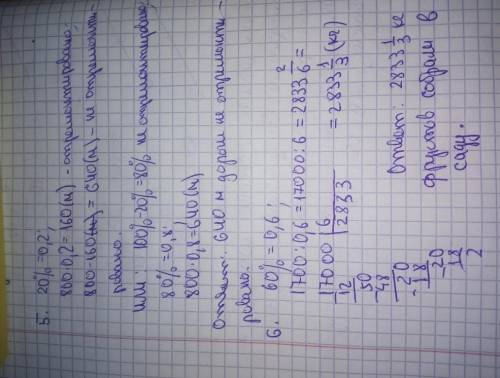 5. 20%=0,2;
800:0,2=160(м) - отремонтировано;
800:160(м)=640(м) - не отремонти-
ровано.
или: 100%-20%=80% не отремонтировано;
80%=0,8;
800:0,8=640(м)
Ответ: 640 м дороги не отремонти-
ровано.
6. 60%=0,6;
1700:0,6=17000:6=2833 2/6=
=2833 1/3 (кг)
17000 | 6
12 | 2833
50
-48
20
-18
20
18
2
Ответ: 2833 1/3 кг
фруктов собрали в
саду.